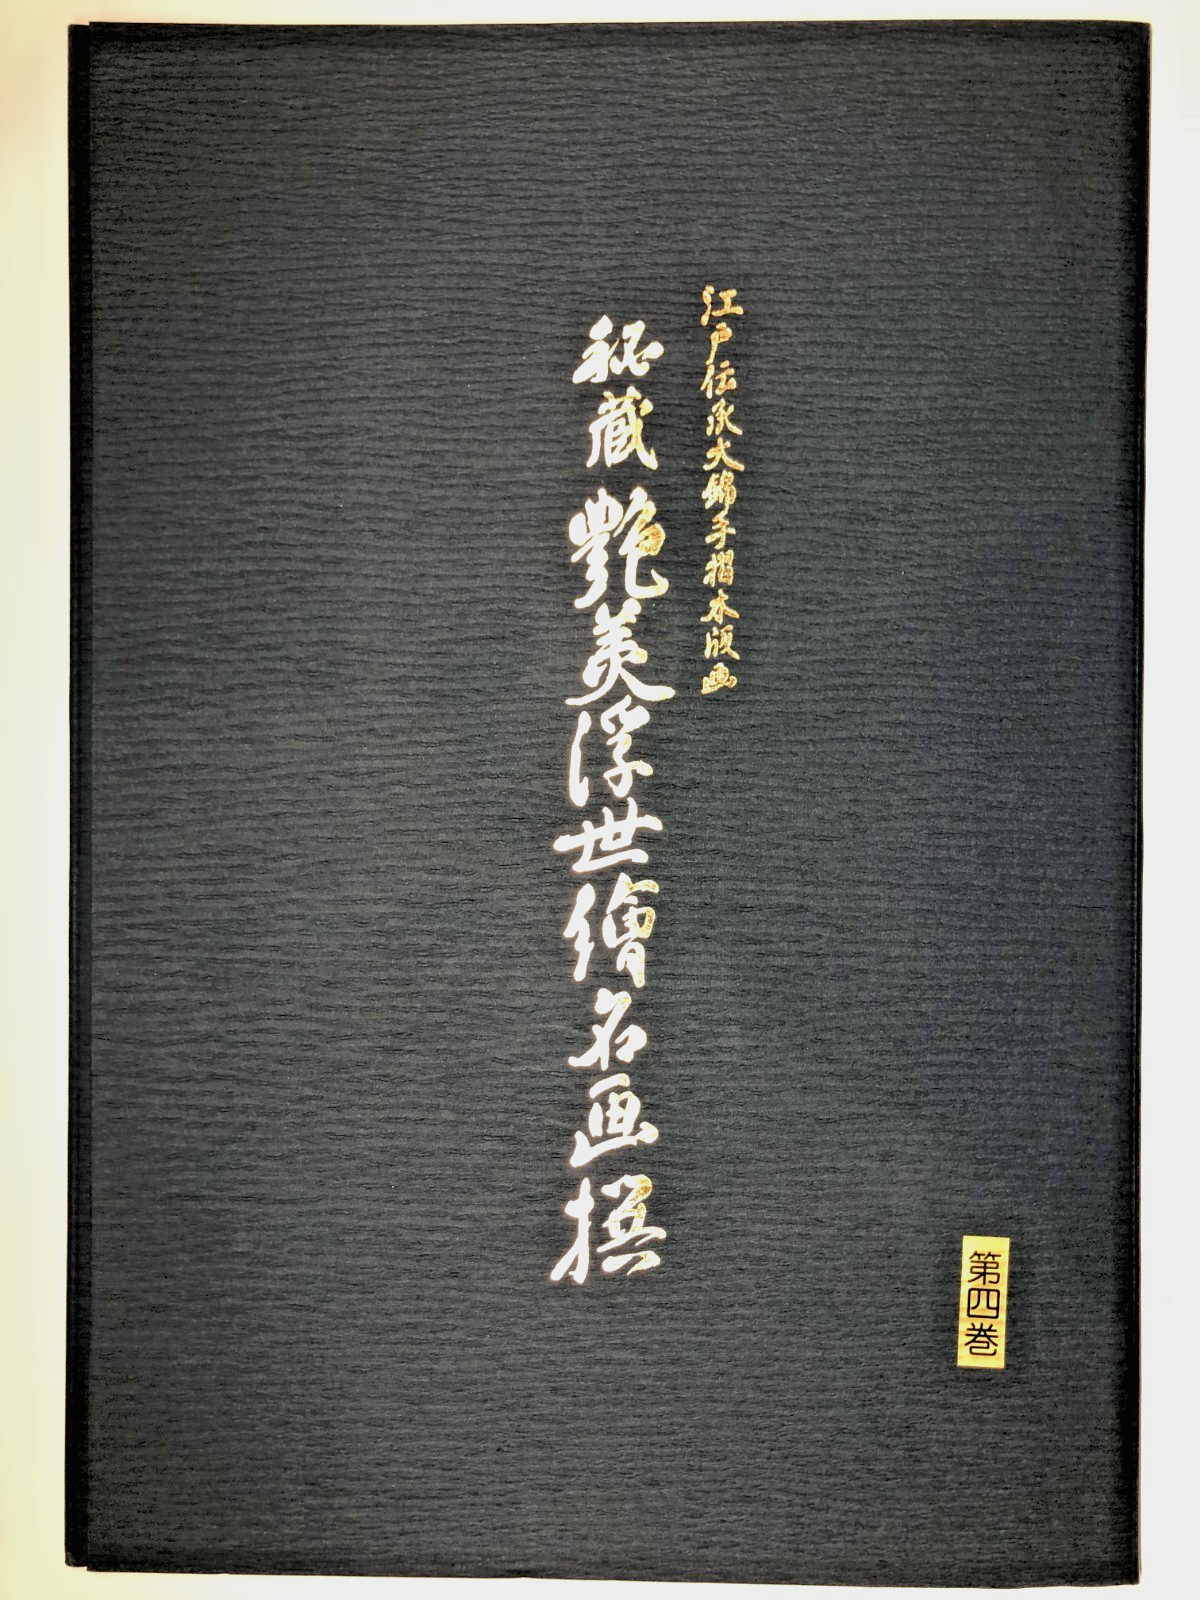 江戸伝承大錦手摺木版画
秘蔵 艶美浮世繪名画撰
第四巻